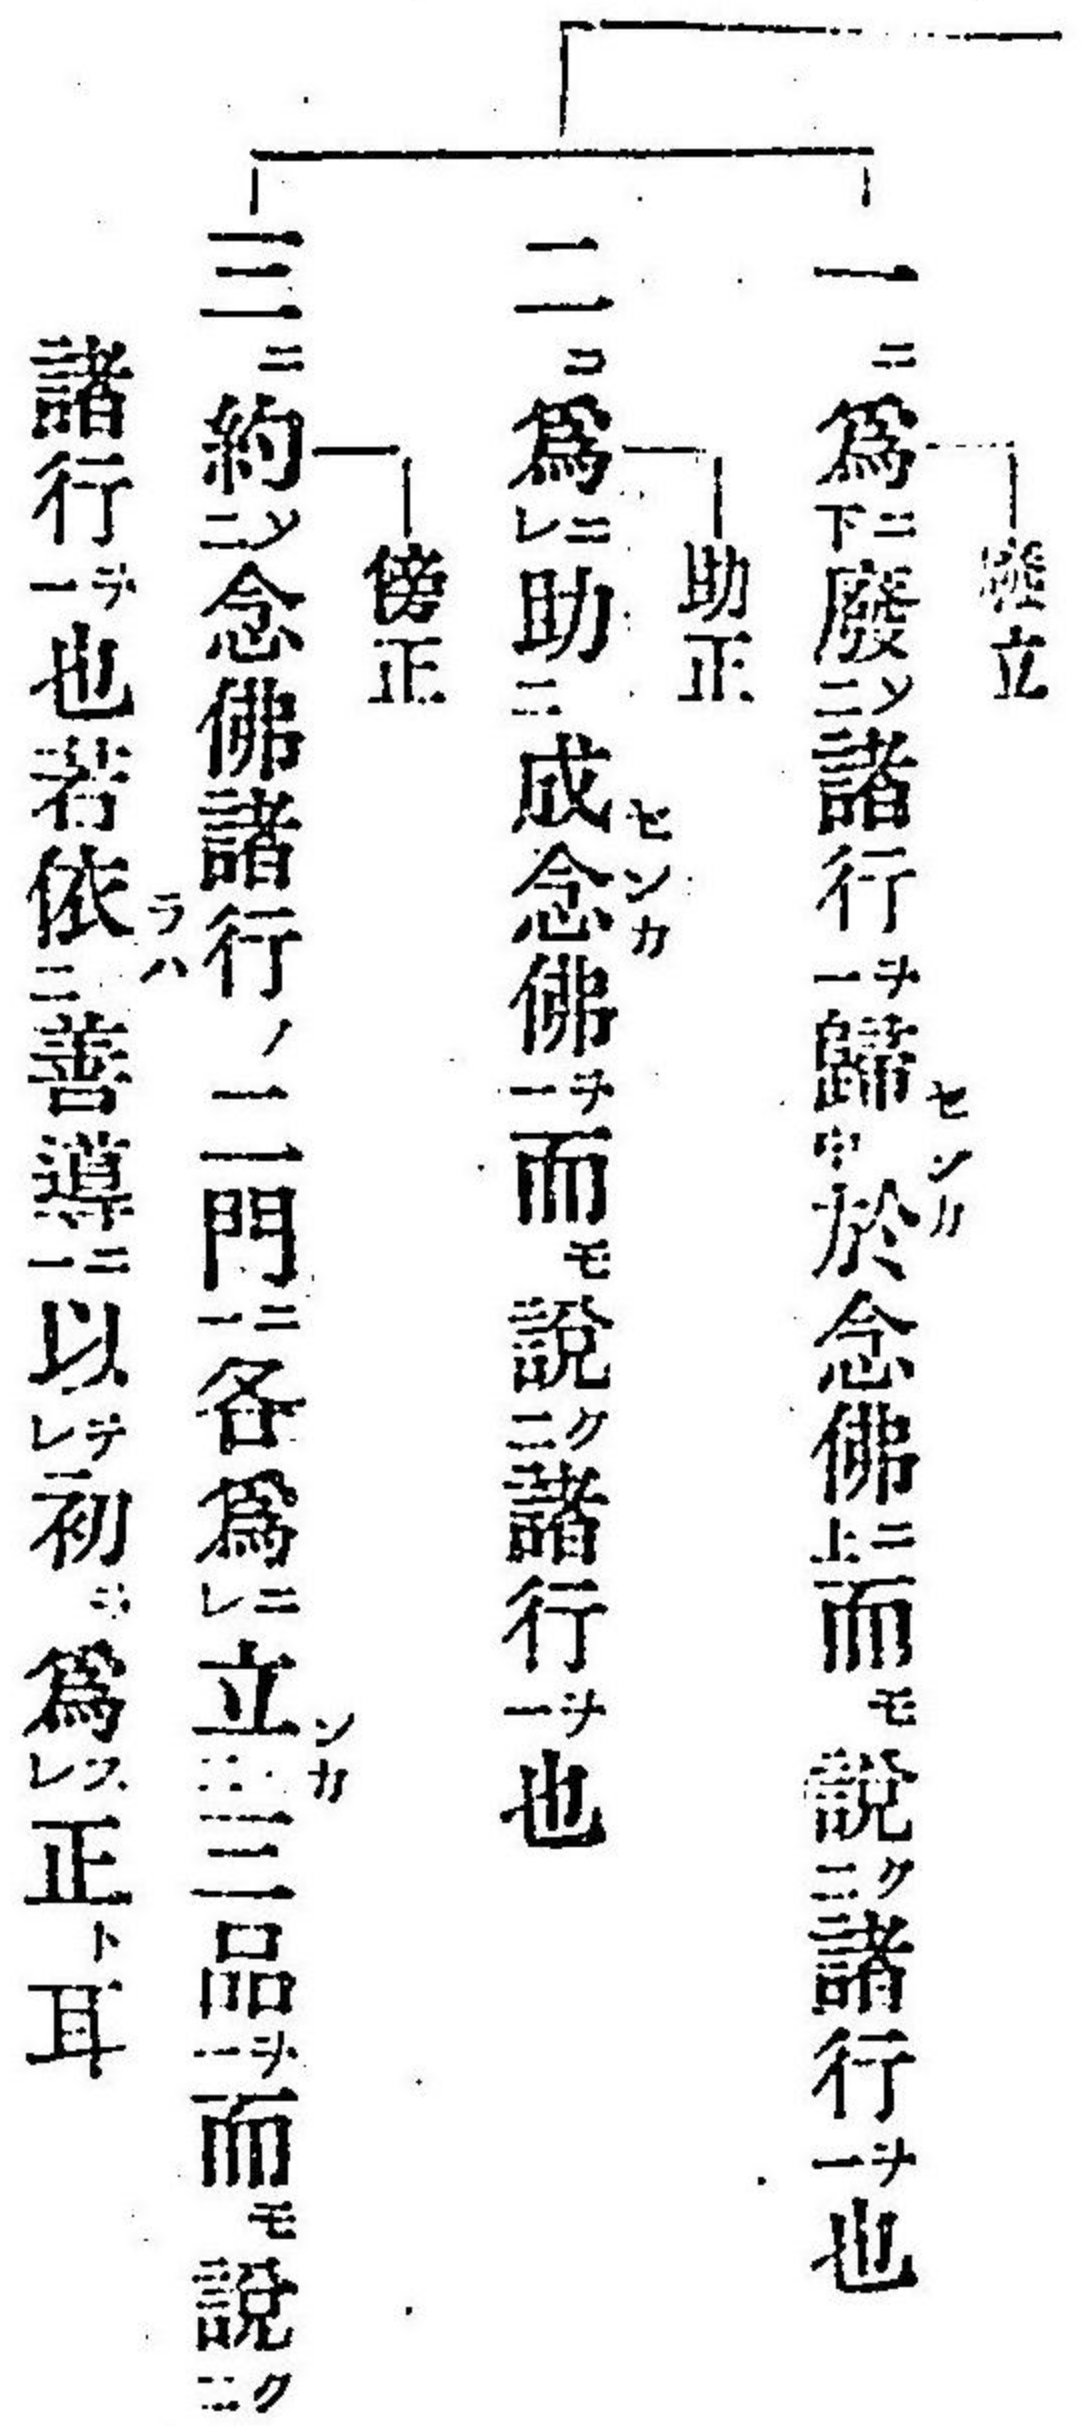 廢立
一ニ爲下ニ廢二ソ諸行一ヲ歸中センカ於念佛上ニ而モ說二ク諸行一ヲ也
助正
二ニ爲レニ助二成センカ念佛一ヲ而モ說二ク諸行一ヲ也
傍正
三ニ約二ソ念佛諸行ノ二門一ニ各爲レニ立二ンカ三品一ヲ而モ說二ク
諸行一ヲ也若依ラハ二善導一ニ以レテ初ヲ爲レス正ト耳